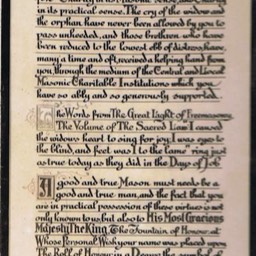 its practical sense. The cry of the widow and
the orphan have never been allowed by you to
pass unheeded, and those brethren who have
been reduced to the lowest ebb of distress have,
many a time and oft received a helping hand from
you, through the medium of the Central and Local
Masonic Charitable Institutions which you
have so ably and so generously supported.
The Words from The Great Light of Freemasonry
The Volume of The Sacred Law I caused
the widows heart to sing for joy I was eyes to
the blind, and feet was I to the lame ring just
as true today as they did in the Days of Job
A good and true Mason must needs be a
good and true man, and the fact that you
are in practical possession of these virtues is not
only known to us but also to His Most Gracious
Majesty The King, The Fountain of Honour at
Whose Personal Wish your name was placed upon
The Roll of Honour in the symbol of